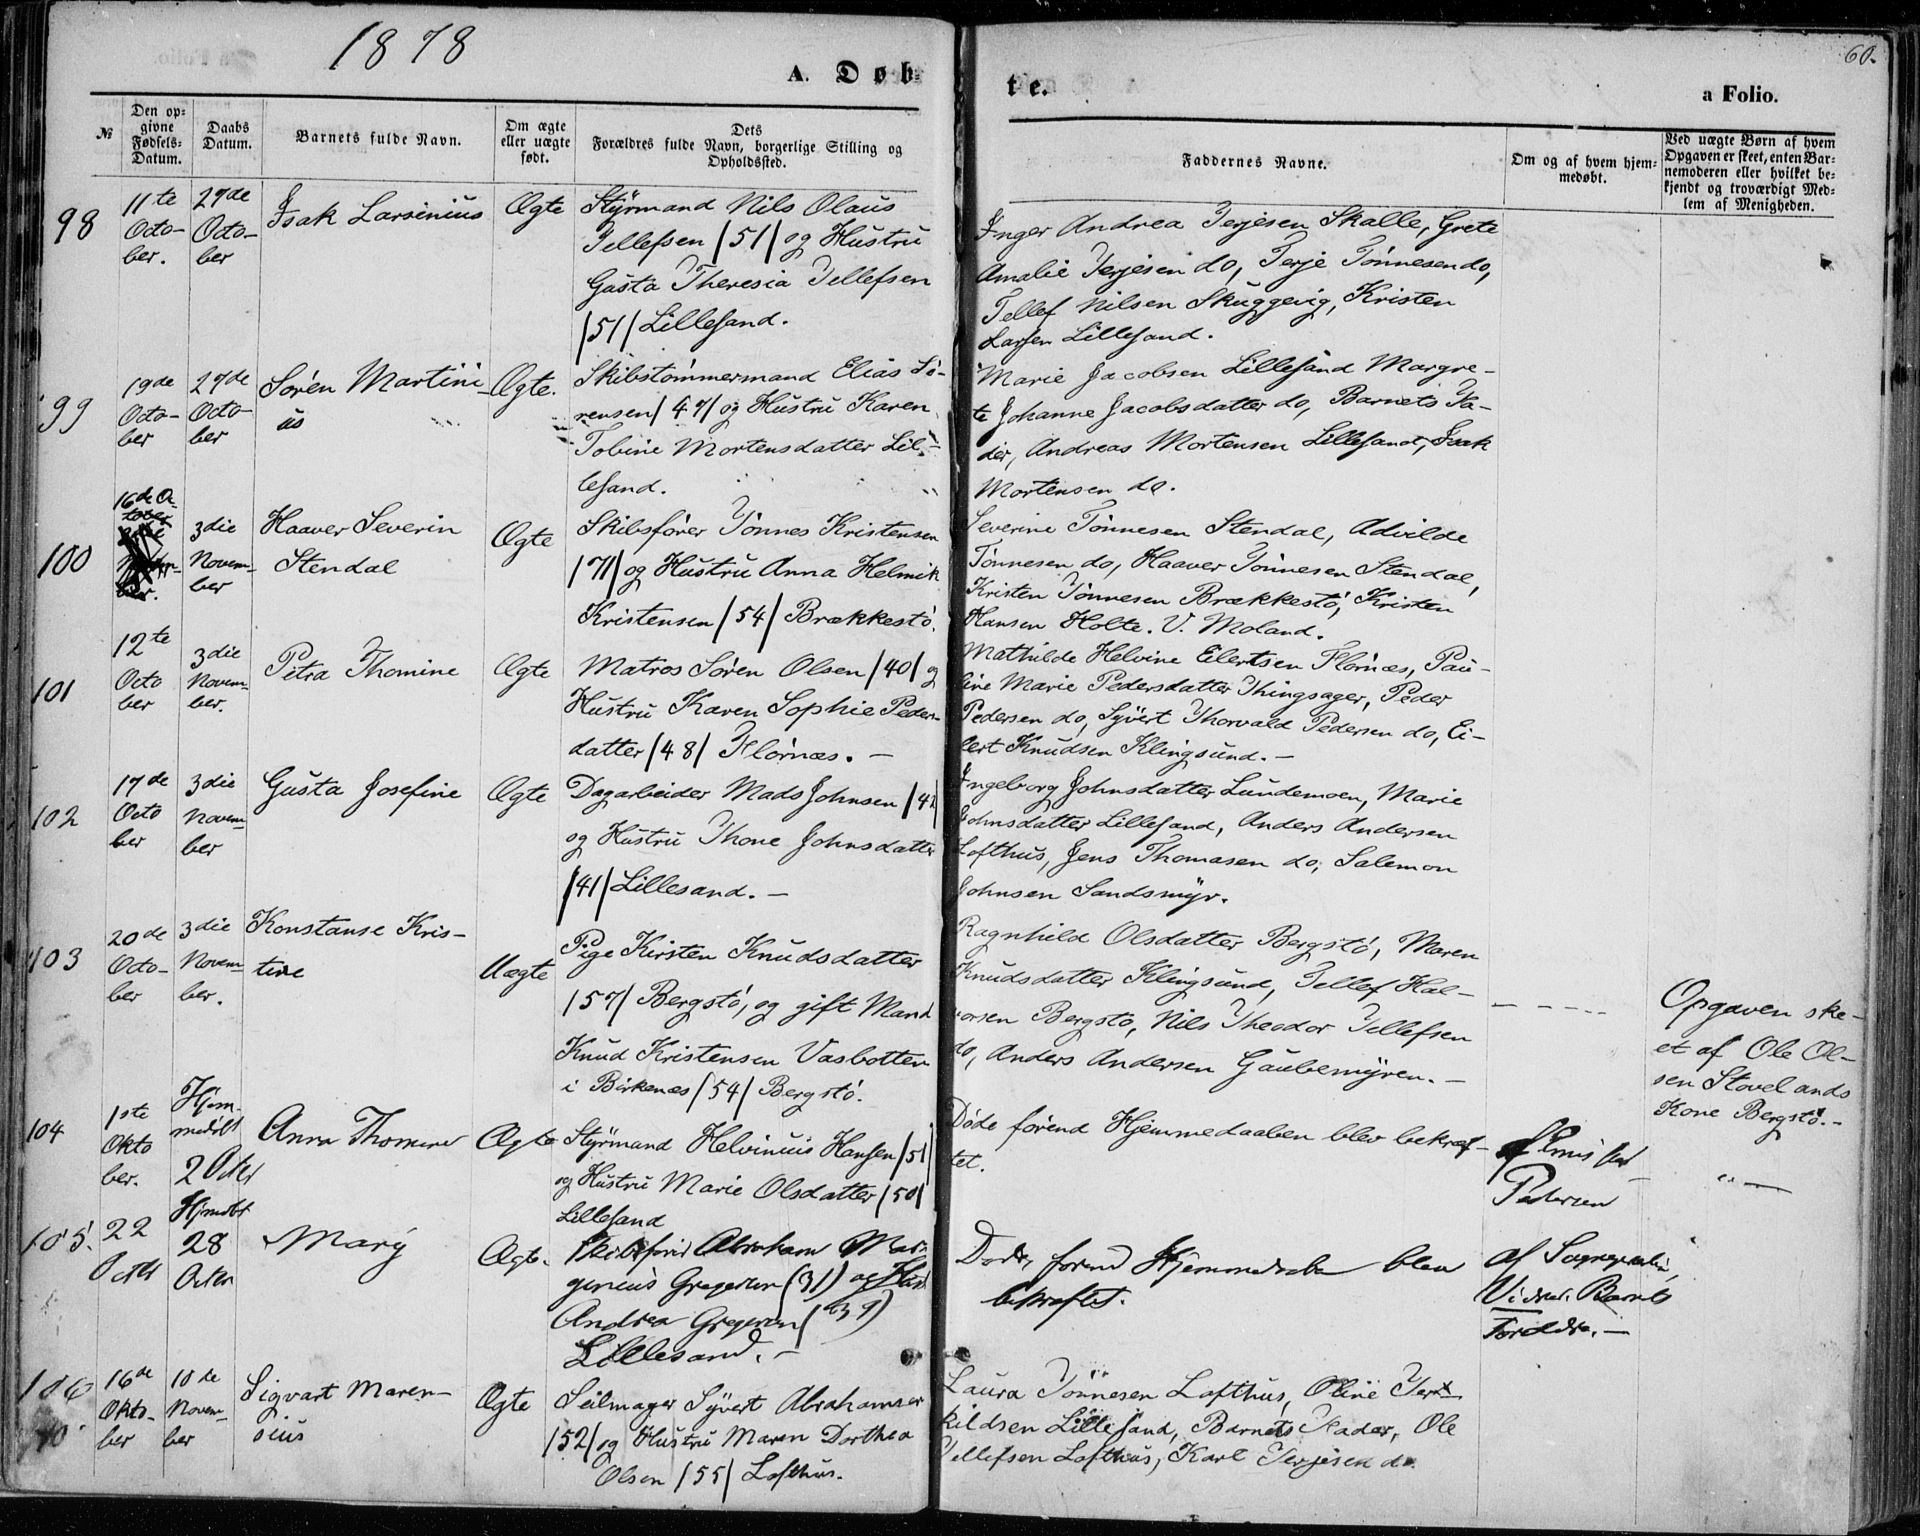 1878
60.
A. Døb-
te.
a Folio.
№
Den op-
givne
Fødsels-
Datum.
Daabs
Datum.
Barnets fulde Navn.
Om ægte
eller uægte
født.
Dets
Forældres fulde Navn, borgerlige Stilling og
Opholdssted.
Faddernes Navne.
Om og af hvem hjem-
medøbt.
Ved uægte Børn af hvem
Opgaven er skeet, enten Bar-
nemoderen eller hvilket be-
kjendt og troværdigt Med-
lem af Menigheden.
98
11te
Octo-
ber.
27de
Octo-
ber
Isak Larsinius
Ægte
Styrmand Nils Olaus
Tellefsen /51/ og Hustru
Gusta Theresia Tellefsen
/51/ Lillesand.
Inger Andrea Terjesen Skalle, Grete
Amalie Terjesen do, Terje Tønnesen do,
Tellef Nilsen Skuggevig, Kristen
Larsen Lillesand.
99
19de
Octo-
ber
27de
Octo-
ber
Søren Martini-
us
Ægte.
Skibstømmermand Elias Sø-
rensen /47/ og Hustru Karen
Tobine Mortensdatter Lil-
lesand.
Marie Jacobsen Lillesand Margre-
te Johanne Jacobsdatter do, Barnets Fa-
der, Andreas Mortensen Lillesand, Isak
Mortensen do.
100
16de Oc
tober
3die
Novem-
ber
Haaver Severin
Stendal
Ægte
Skibsfører Tønnes Kristensen
/71/ og Hustru Anna Helmik
Kristensen /54/ Brækkestø.
Severine Tønnesen Stendal, Advilde
Tønnesen do, Haaver Tønnesen Stendal,
Kristen Tønnesen Brækkestø, Kristen
Hansen Holte. V. Moland.
101
12te
Octo
ber
3die
Novem-
ber.
Petra Thomine
Ægte
Matros Søren Olsen /40/ og
Hustru Karen Sophie Peders-
datter /48/ Flørnæs. -
Mathilde Helvine Eilertsen Flørnæs, Pau-
line Marie Pedersdatter Thingsager, Peder
Pedersen do, Syvert Thorvald Pedersen do, Ei-
lert Knudsen Klingsund. -
102
17de
Octo
ber
3die
Novem-
ber
Gusta Josefine
Ægte
Dagarbeider Mads Johnsen /42/
og Hustru Thone Johnsdatter
/41/ Lillesand. -
Ingeborg Johnsdatter Lundemoen, Marie
Johnsdatter Lillesand, Anders Andersen
Lofthus, Jens Thomasen do, Salemon
Johnsen Sandsmyr.
103
20de
Octo-
ber
3die
Novem-
ber.
Konstanse Kris-
tine
Uægte
Pige Kirsten Knudsdatter
/57/ Bergstø, og gift Mand
Knud Kristensen Vasbotten
i Birkenæs /54/ Bergstø.
Ragnhild Olsdatter Bergstø, Maren
Knudsdatter Klingsund, Tellef Hal-
vorsen Bergstø, Nils Theodor Tellefsen
do, Anders Andersen Gaubemyren. -
Opgaven ske-
et af Ole Ol-
sen Stovelands
Kone Bergstø. -
104
1ste
Okto
ber.
Hjem-
medøbt
2 Octbr
Anna Thomine
Ægte
Styrmand Helvinius Hansen /51/
og Hustru Marie Olsdatter /50/
Lillesand
Døde førend Hjemmedaaben blev bekræf-
tet.
af
Pedersen
105.
22
Octbr
Hjmdbt
28
Octbr
Mary
Ægte.
Skibsfører Abraham
Gregersen (31) og Hust
Andrea Gregersen (39)
Lillesand. -
Døde, førend Hjemmedaaben blev
bekræftet.
af Sognepresten,
Barnets
Forældre. -
106
16de
Okto-
ber
10de
Novem-
ber
Sigvart Maren-
sius
Ægte
Seilmager Syvert Abrahamsen
/52/ og Hustru Maren Dorthea
Olsen /55/ Lofthus.
Laura Tønnesen Lofthus, Oline Ters-
kildsen Lillesand, Barnets Fader, Ole
Tellefsen Lofthus, Karl Terjesen do.